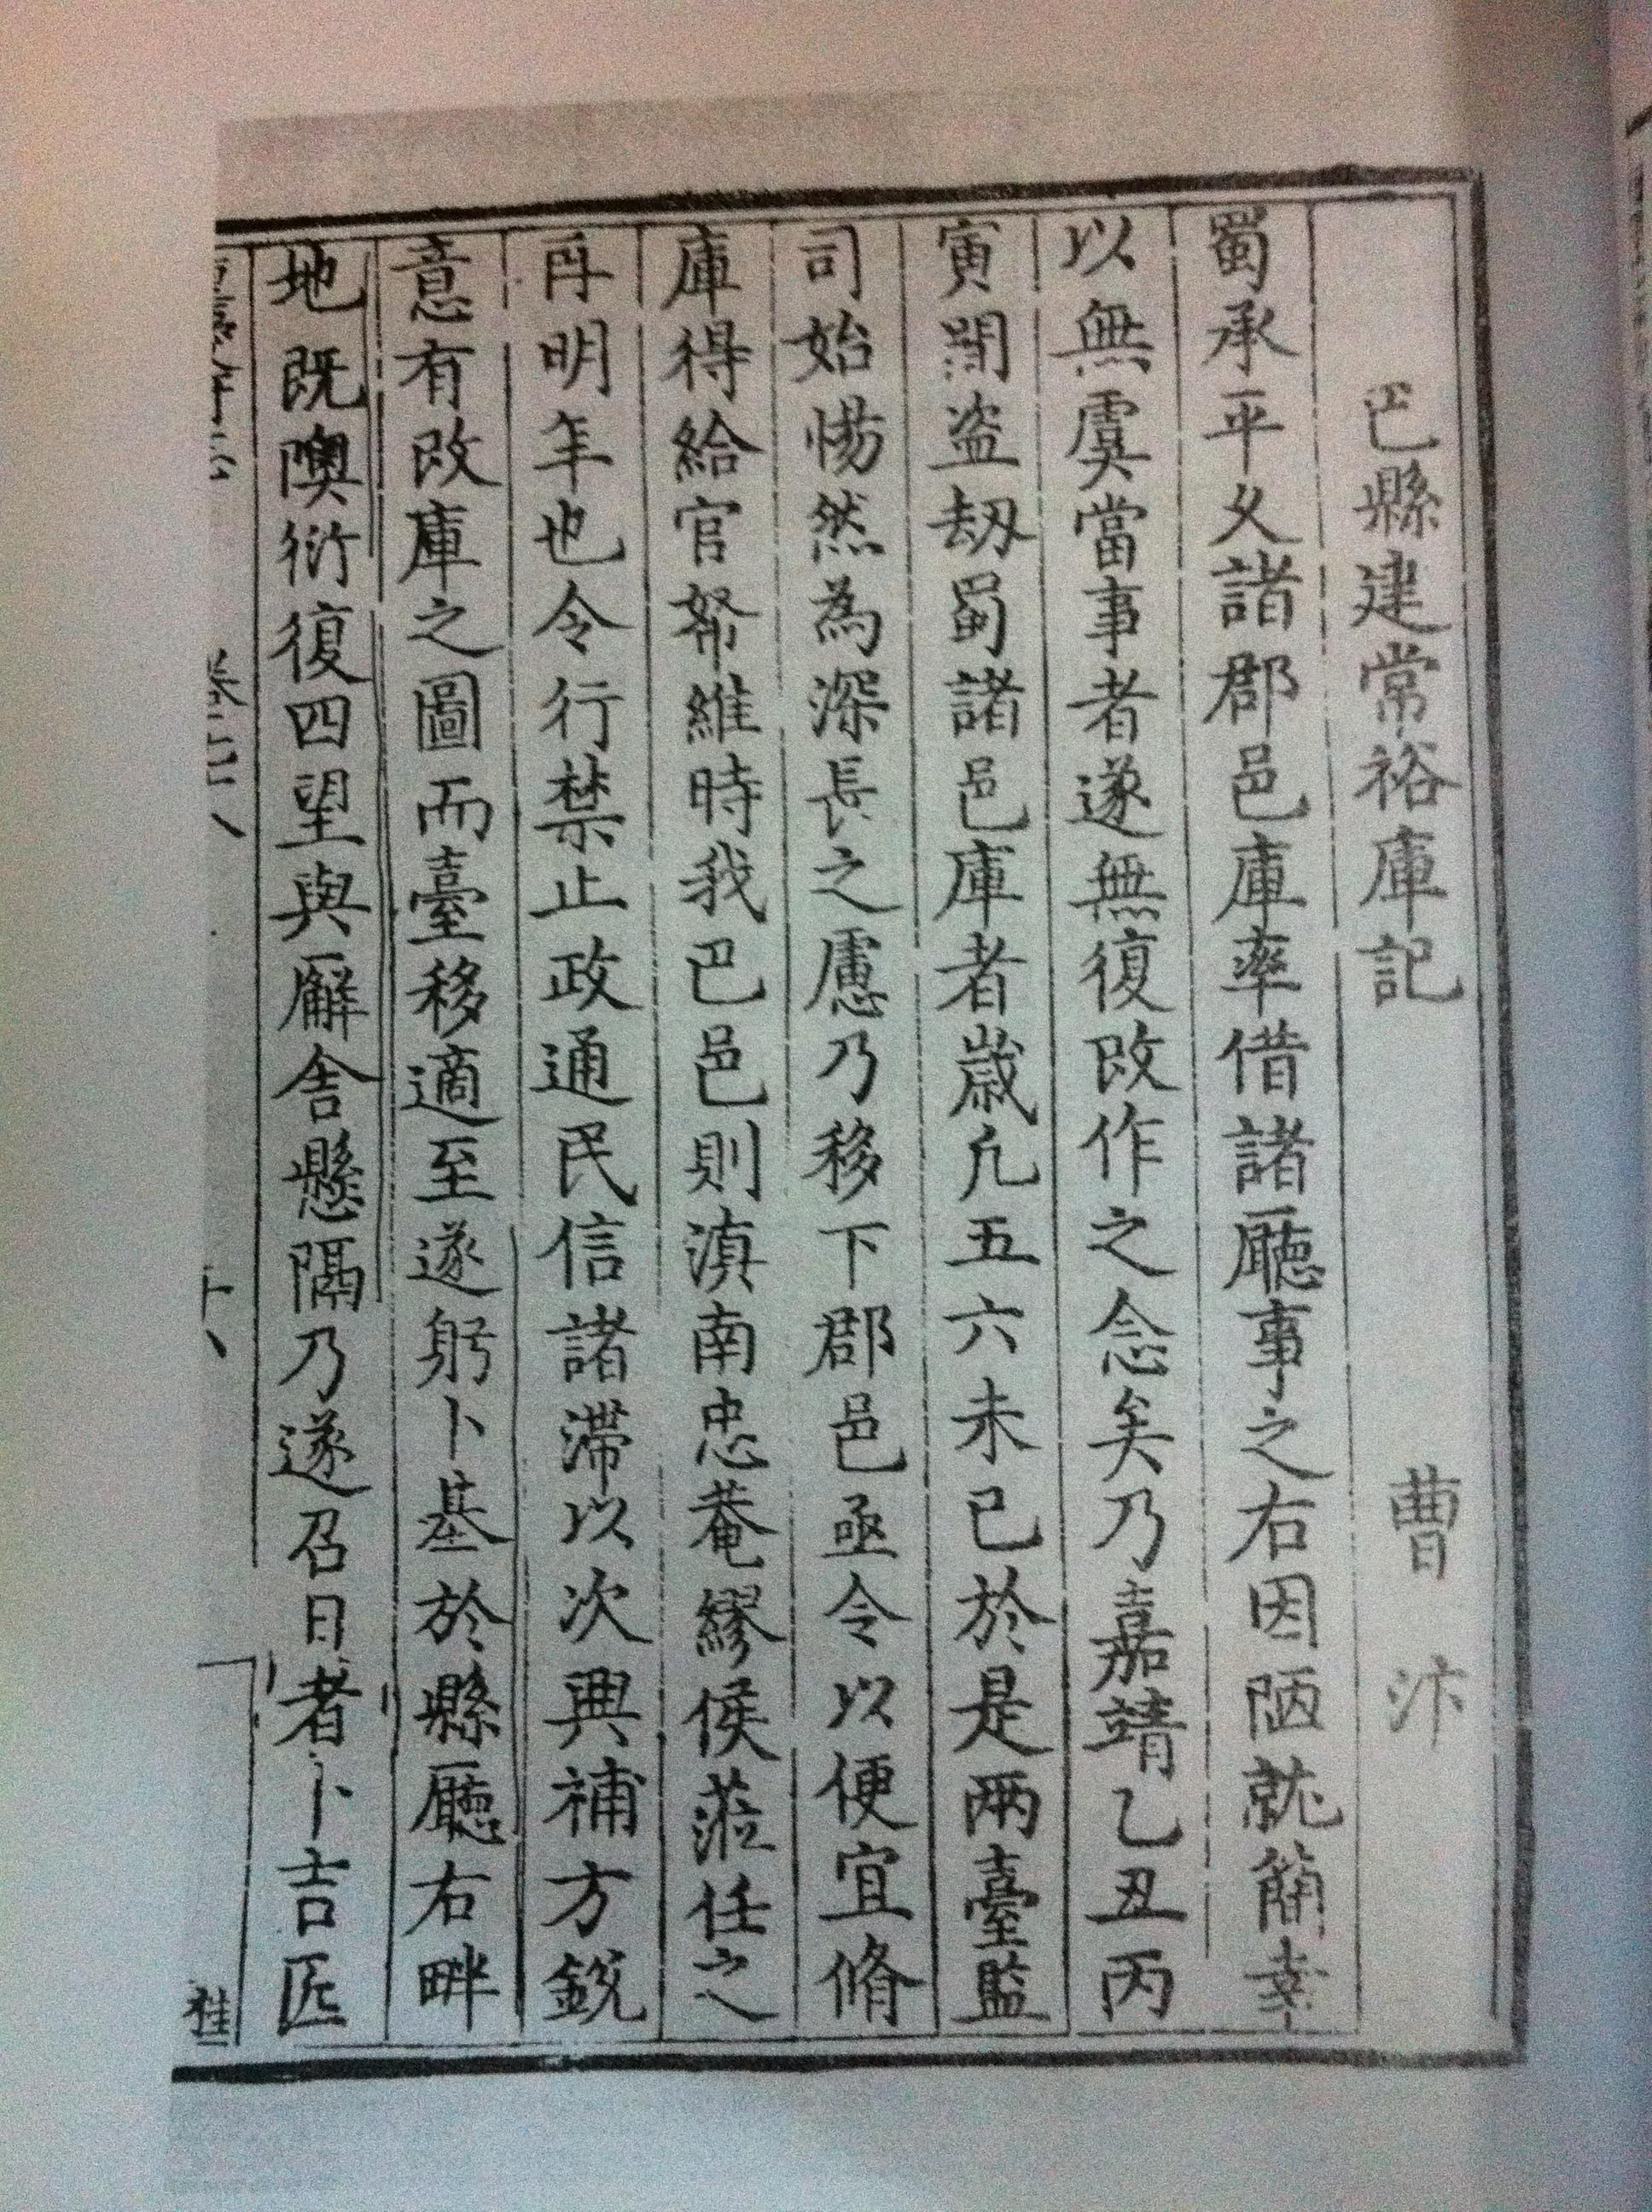 巴縣建常裕庫記 曹汴
蜀承平乆諸郡邑庫率借諸廳事之右因陋就簡幸
以無虞當事者遂無復改作之念矣乃嘉靖乙丑丙
寅間盗刼蜀諸邑庫者歲凢五六未已於是兩臺監
司始惕然為深長之慮乃移下郡邑亟令以便宜脩
庫得給官帑維時我巴邑則滇南忠菴繆侯蒞任之
再明年也令行禁止政通民信諸滯以次興補方銳
意有改庫之圖而臺移適至遂躬卜基於縣廳右畔
地既隩衍復四望與廨舍懸隔乃遂召日者卜吉匠